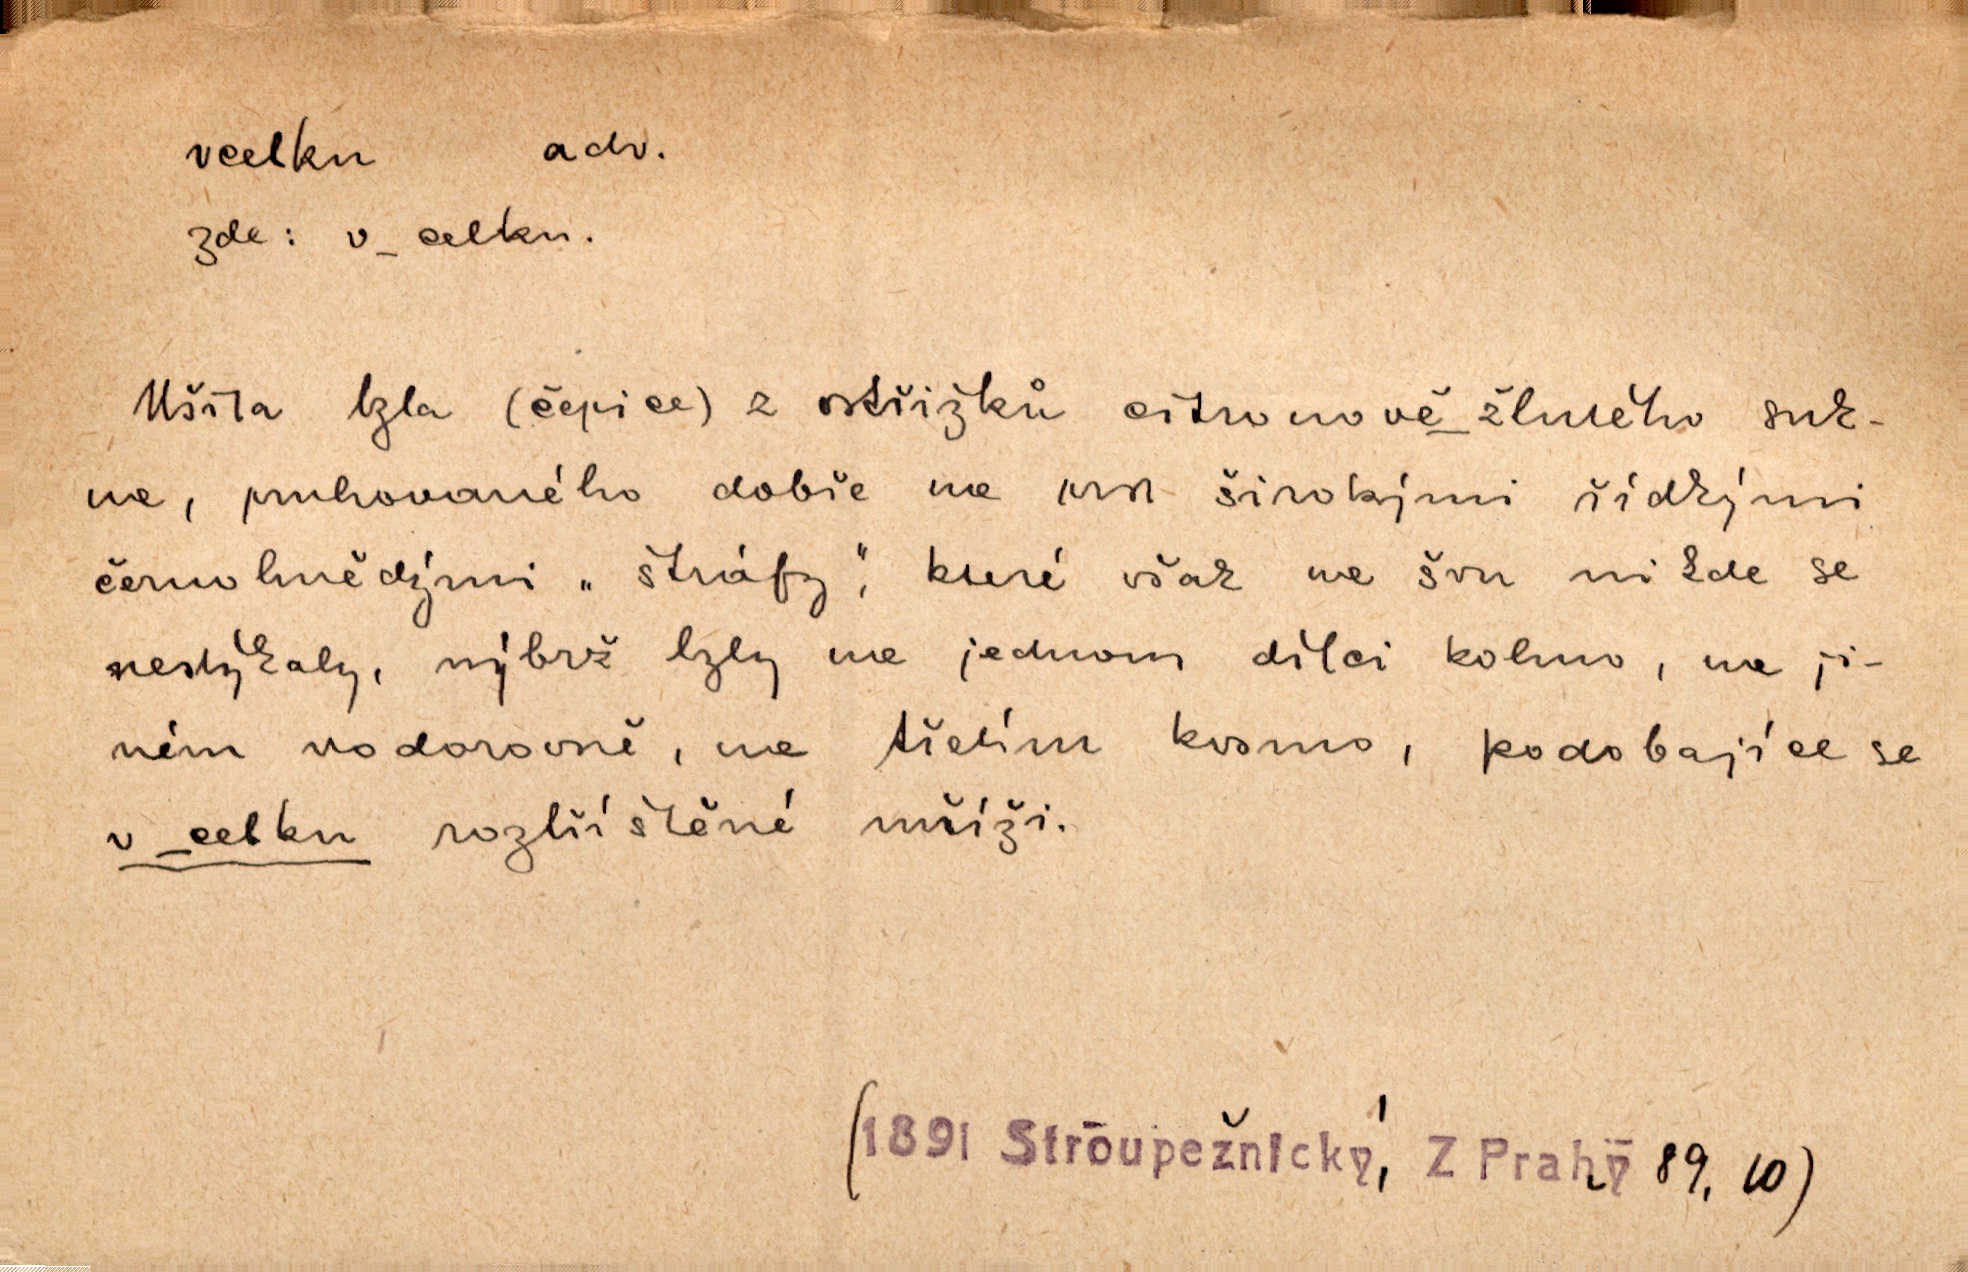 vcelku adv.
zde: v_celku.
Ušita byla (čepice) z ostřižků citronově_žlutého suk-
na, pruhovaného dobře na prst širokými řídkými
černohnědými „štráfy", které však na švu nikde se
nestýkaly, nýbrž byly na jednom dílci kolmo, na ji-
ném vodorovně, na třetím kosmo, podobajíce se
v_celku roztříštěné mříži.
(1891 Stroupežnický, Z Prahy 89, 10)